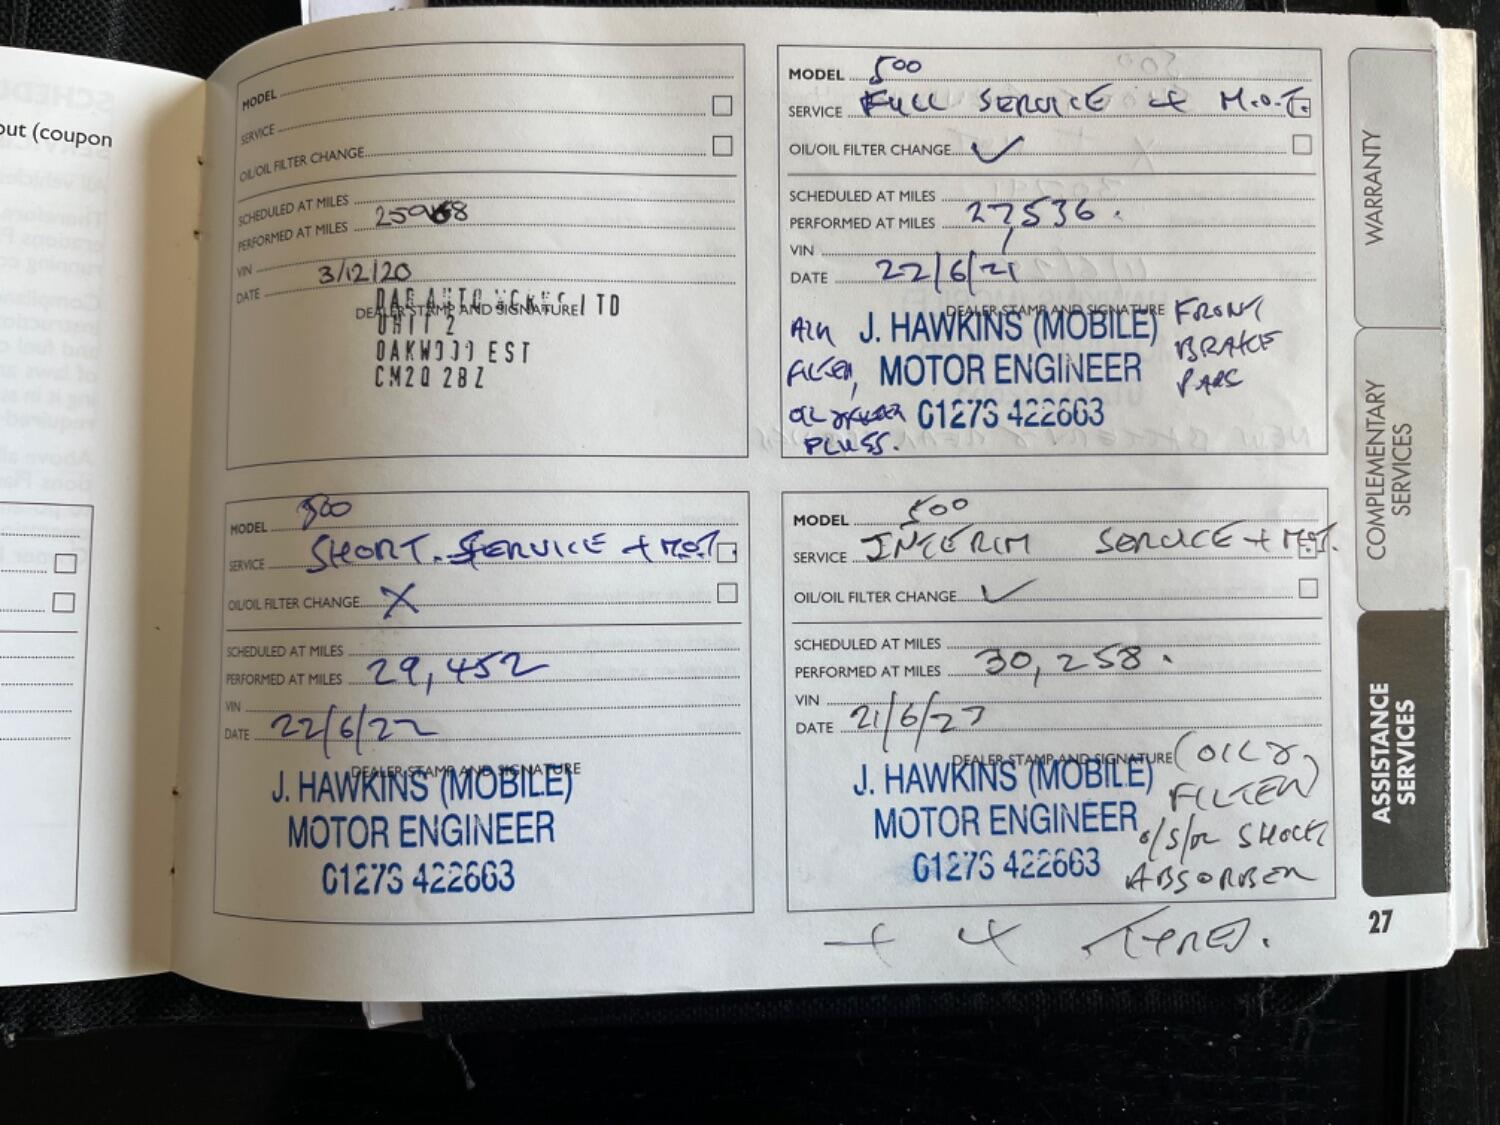 out (coupon
MODEL
SERVICE
OIL/OIL FILTER CHANGE
SCHEDULED AT MILES
PERFORMED AT MILES
VIN
DATE 3/12/20
DEALER STAMP AND SIGNATURE
UNIT 2
OAKWOOD EST
CM20 2BZ
MODEL 500
SERVICE FULL SERVICE + M.O.T.
OIL/OIL FILTER CHANGE ✓
SCHEDULED AT MILES
PERFORMED AT MILES 27,536.
VIN
DATE 22/6/21
DEALER STAMP AND SIGNATURE
J. HAWKINS (MOBILE)
MOTOR ENGINEER
01273 422663
AIR
FILTER,
OIL & FILTER
PLUGS.
FRONT
BRAKE
PADS
MODEL 500
SERVICE SHORT. SERVICE + M.O.T.
OIL/OIL FILTER CHANGE X
SCHEDULED AT MILES
PERFORMED AT MILES 29,452
VIN
DATE 22/6/22
DEALER STAMP AND SIGNATURE
J. HAWKINS (MOBILE)
MOTOR ENGINEER
01273 422663
MODEL 500
SERVICE INTERIM SERVICE + M.O.T.
OIL/OIL FILTER CHANGE ✓
SCHEDULED AT MILES
PERFORMED AT MILES 30,258.
VIN
DATE 21/6/23
DEALER STAMP AND SIGNATURE
J. HAWKINS (MOBILE)
MOTOR ENGINEER
01273 422663
(OIL &
FILTER)
O/S/R SHOCK
ABSORBER
+ 4 TYRES.
WARRANTY
COMPLEMENTARY
SERVICES
ASSISTANCE
SERVICES
27